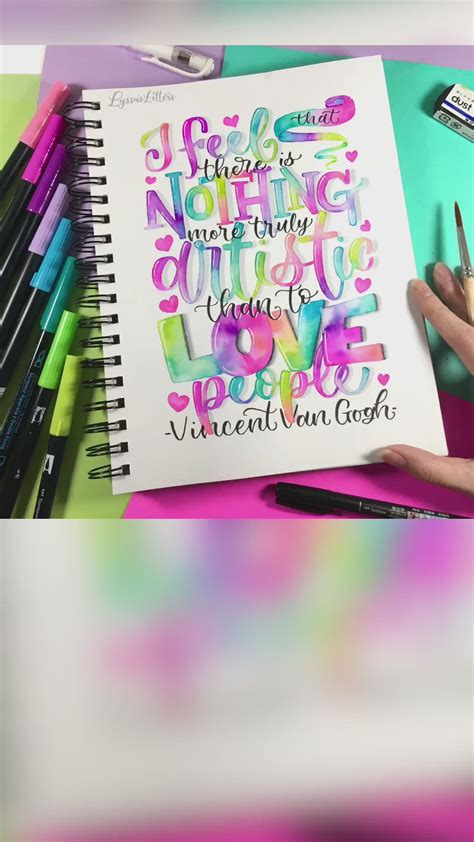 Lyssa'sLetters
I feel that
there is
NOTHING
more truly
artistic
than to
LOVE
people
-Vincent Van Gogh-
dust